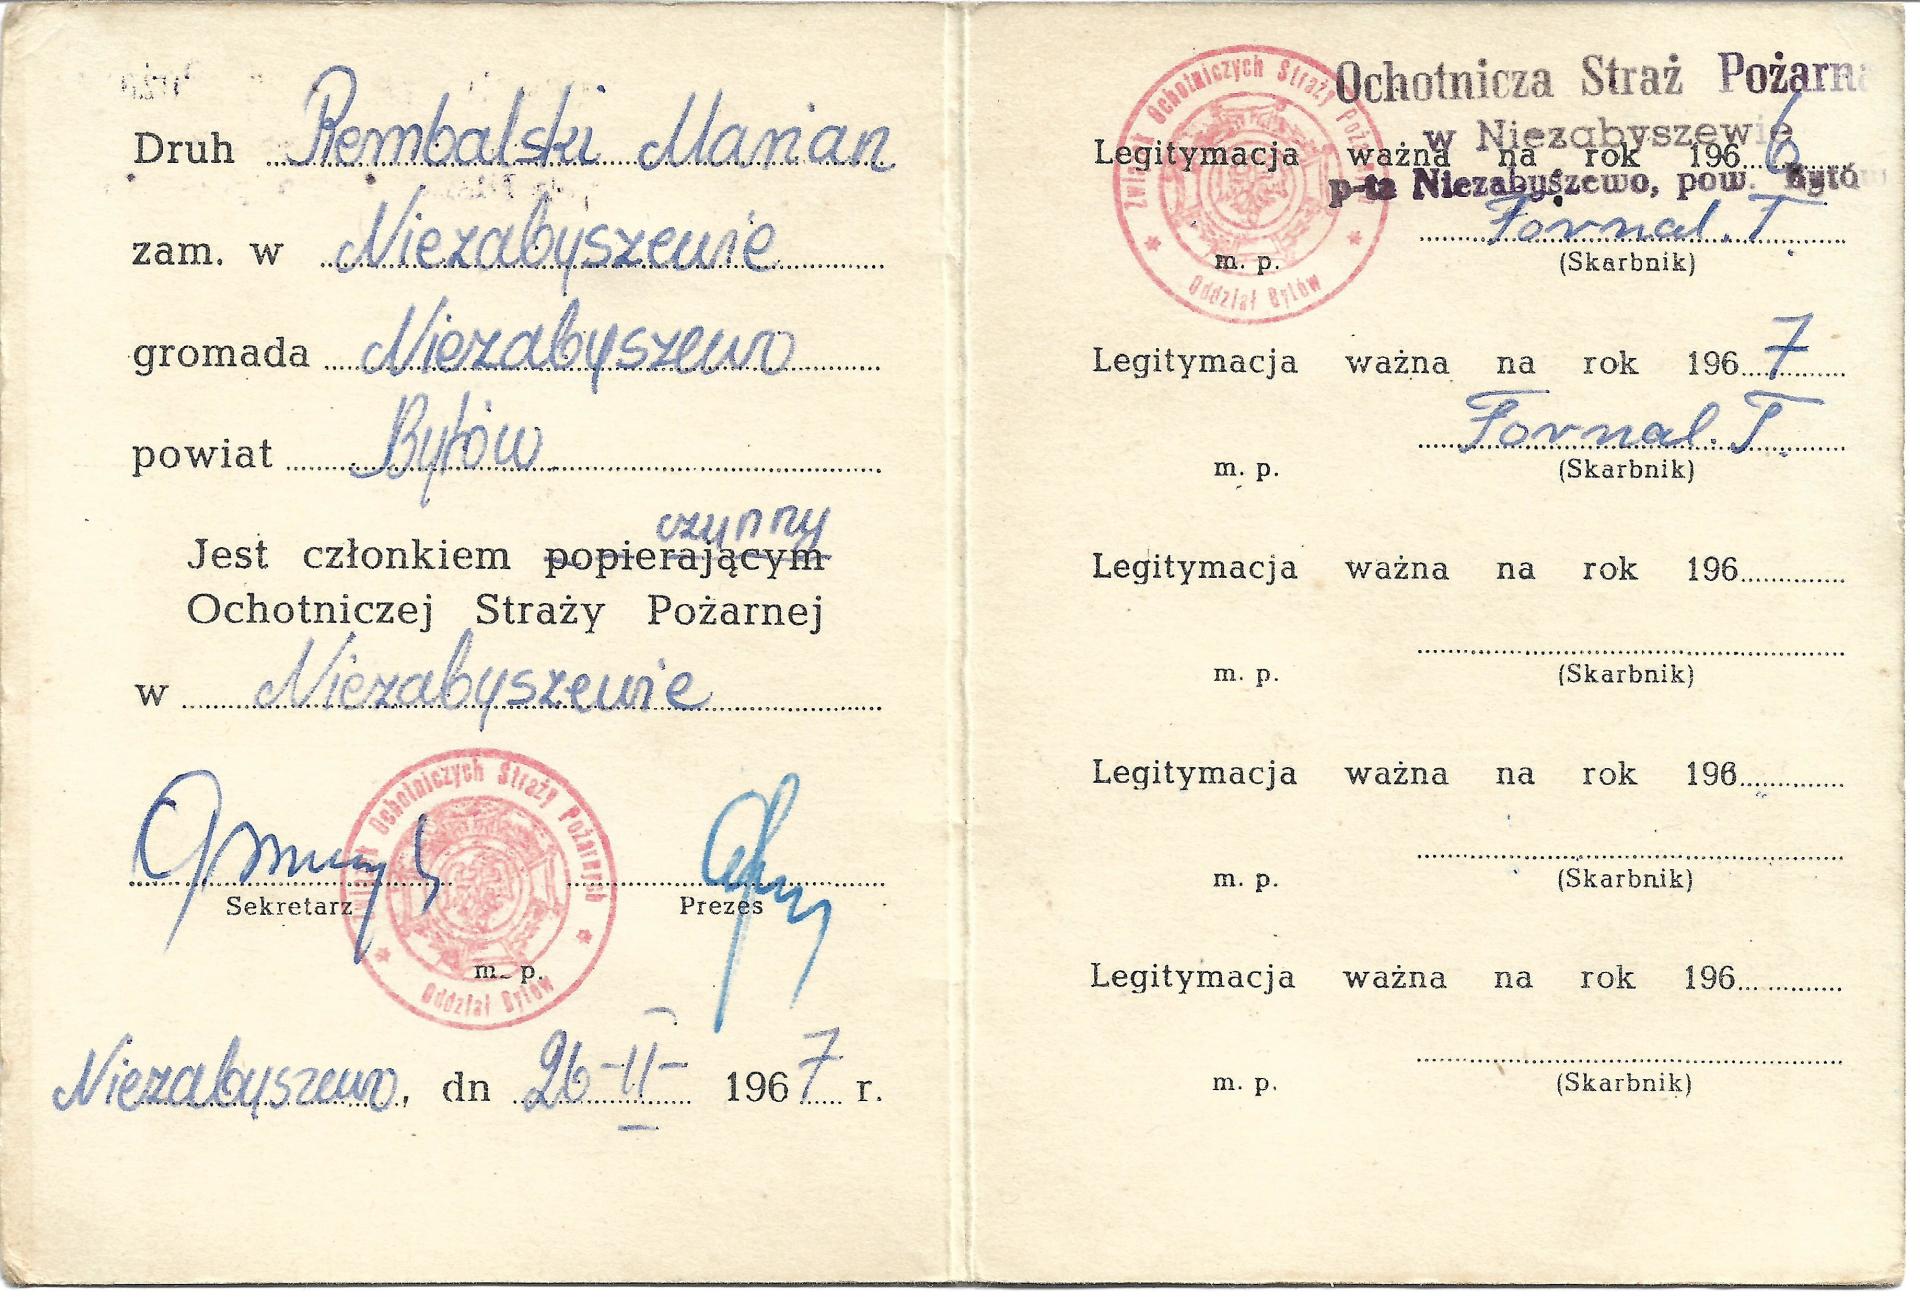 Druh Rembalski Marian
zam. w Niezabyszewie
gromada Niezabyszewo
powiat Bytów
czynny
Jest członkiem popierającym
Ochotniczej Straży Pożarnej
w Niezabyszewie
Związek Ochotniczych Straży Pożarnych
Oddział Bytów
Sekretarz
Prezes
m. p.
Niezabyszewo, dn 26-II- 1967 r.
Związek Ochotniczych Straży Pożarnych
Oddział Bytów
Ochotnicza Straż Pożarna
w Niezabyszewie
p-ta Niezabyszewo, pow. Bytów
Legitymacja ważna na rok 1966
Fornal. T.
m. p. (Skarbnik)
Legitymacja ważna na rok 1967
Fornal. T.
m. p. (Skarbnik)
Legitymacja ważna na rok 196
m. p. (Skarbnik)
Legitymacja ważna na rok 196
m. p. (Skarbnik)
Legitymacja ważna na rok 196
m. p. (Skarbnik)